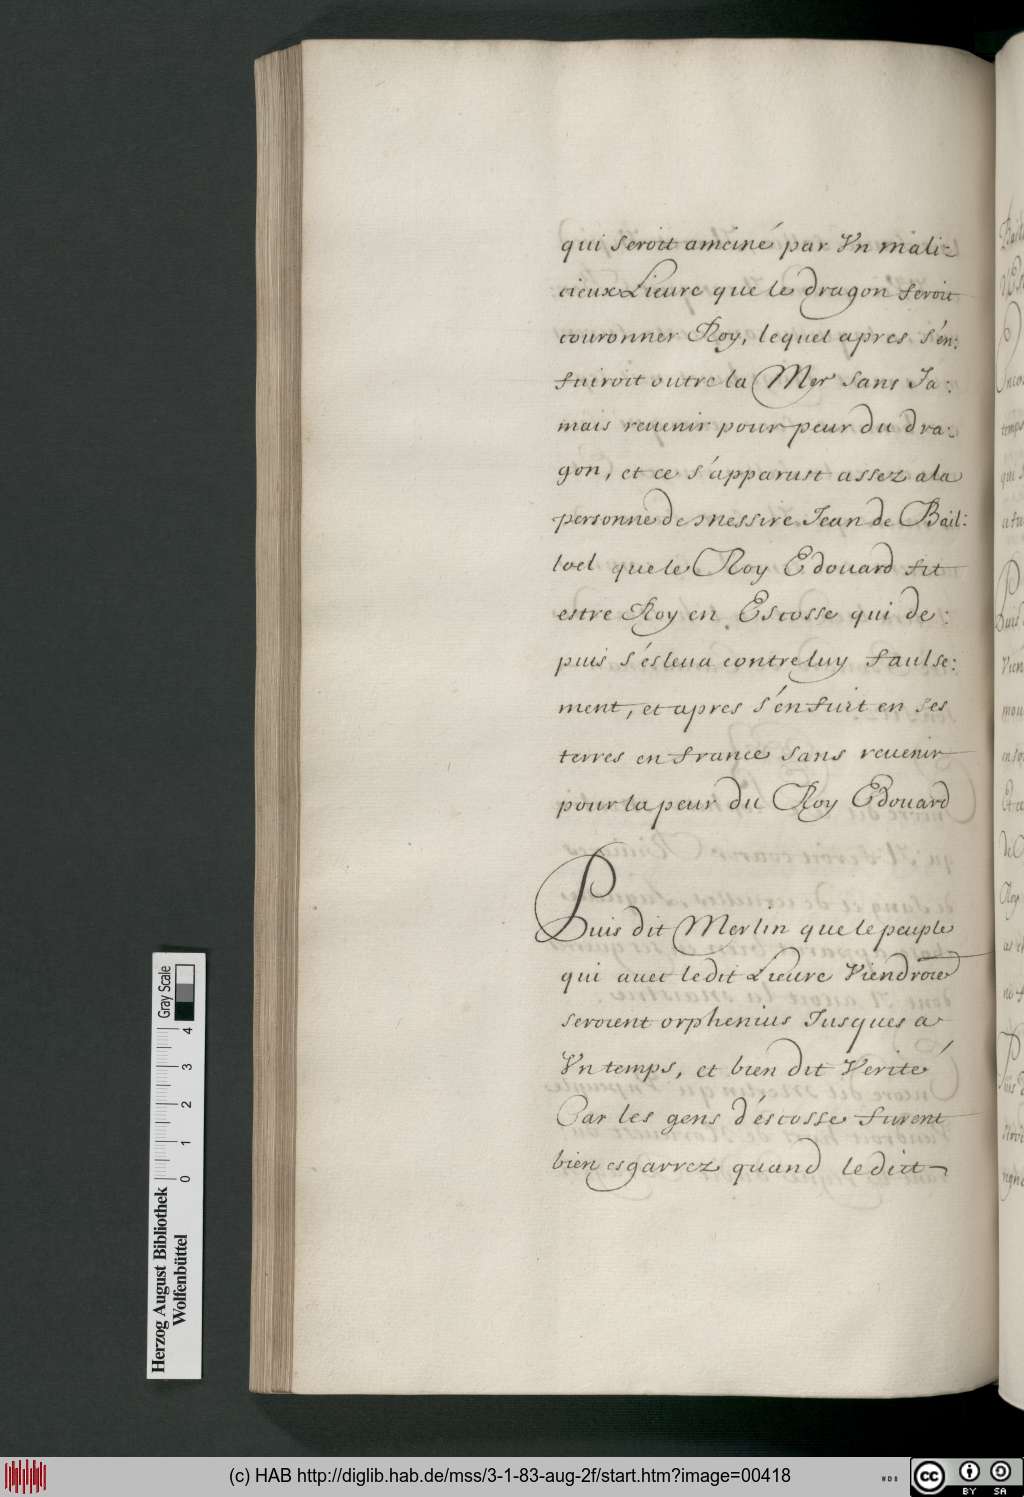 qui seroit ameiné par Vn mali-
cieux Lieure que le dragon feroit
couronner Roy, lequel apres s'en:
fuiroit outre la Mer sans Ja:
mais reuenir pour peur du dra:
gon, et ce s'apparust assez a la
personne de messire Jean de Bail:
loel que le Roy Edouard fit
estre Roy en Escosse qui de:
puis s'esleua contre luy faulse:
ment, et apres s'en fuit en ses
terres en france sans reuenir
pour la peur du Roy Edouard
Puis dit Merlin que le peuple
qui auec ledit Lieure Viendroie
seroient orphenins Jusques a
Vn temps, et bien dit Verité
Car les gens d'escosse furent
bien esgarrez quand ledict
Herzog August Bibliothek
Wolfenbüttel
0 1 2 3 4
Gray Scale
(c) HAB http://diglib.hab.de/mss/3-1-83-aug-2f/start.htm?image=00418
WDB
cc BY SA